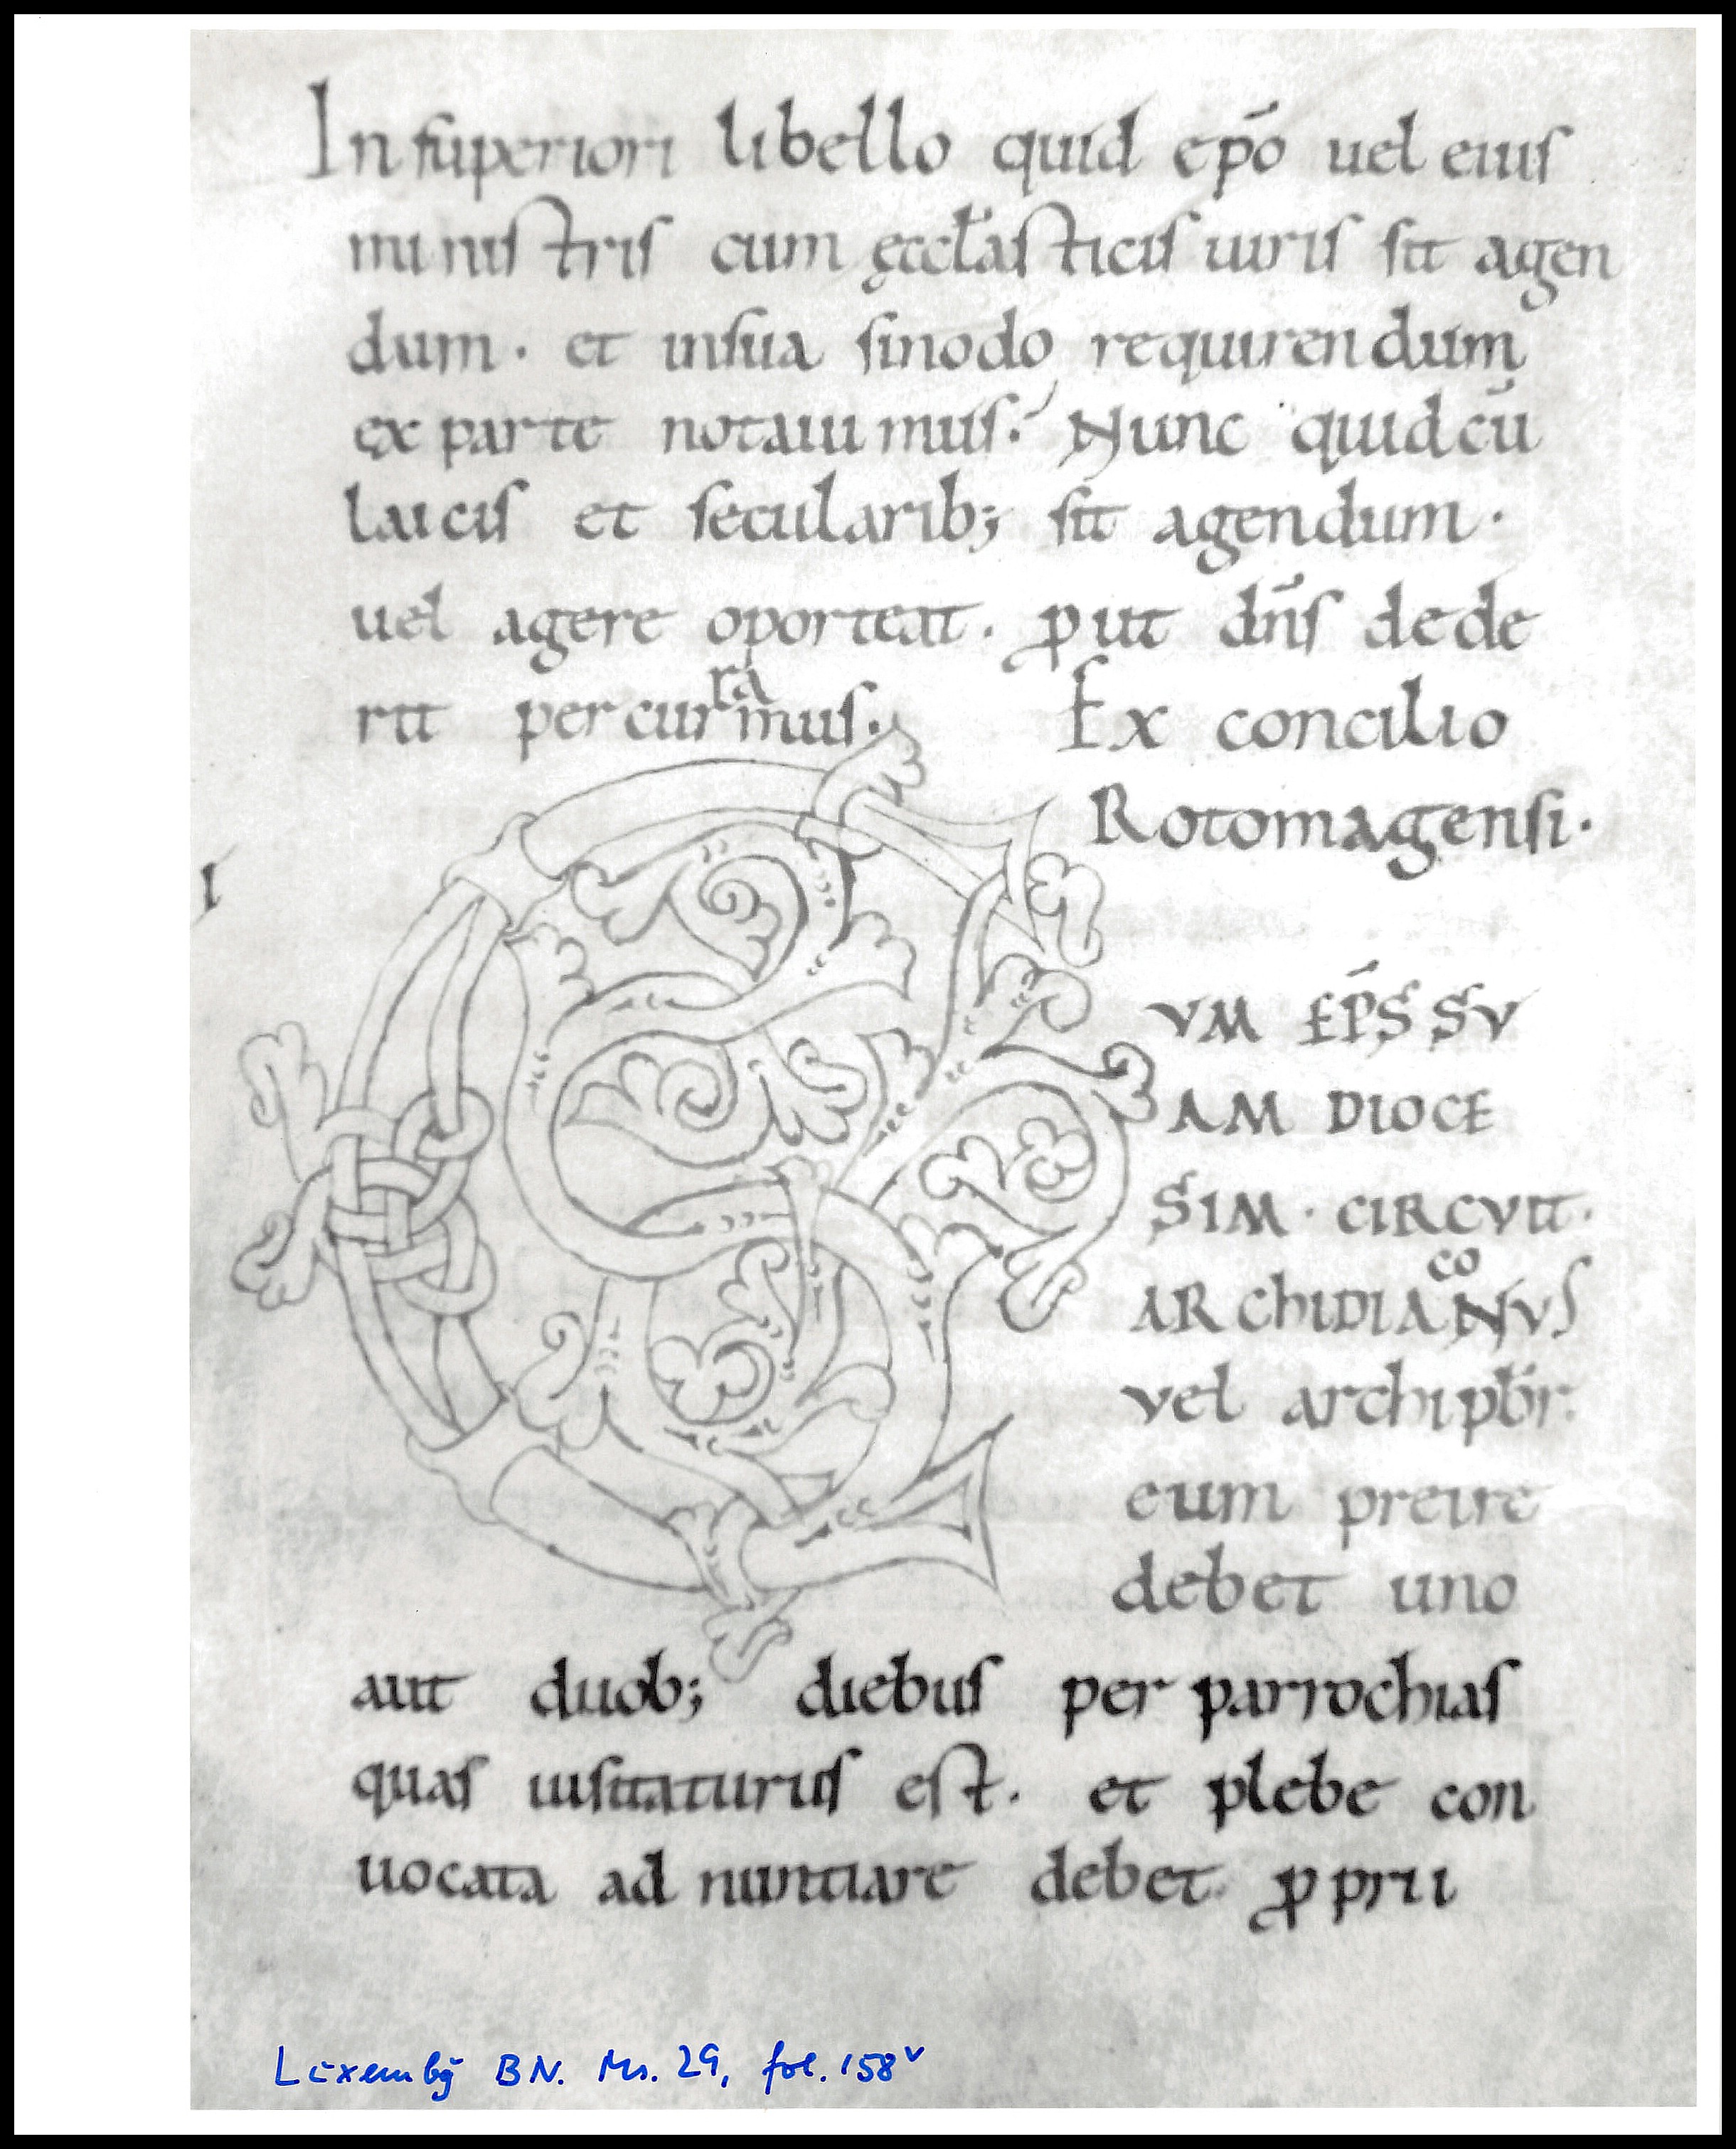 In superiori libello quid ep̄o uel eius
ministris cum ęccl̄asticis iuris sit agen
dum· et insua sinodo requirendum
ex parte notauimus. Nunc quid cū
laicis et secularib; sit agendum·
uel agere oporteat. ꝓut dn̄s dede
rit percurramus. Ex concilio
Rotomagensi·
I
CVM EP̄S SV
AM DIOCE
SIM · CIRCVIT·
ARChIDIACONVS
vel archipb̄r
eum preire
debet uno
aut duob; diebus per parrochias
quas uisitaturus est. et plebe con
uocata ad nuntiare debet ꝓprii
Luxembg BN. Ms. 29, fol. 158v